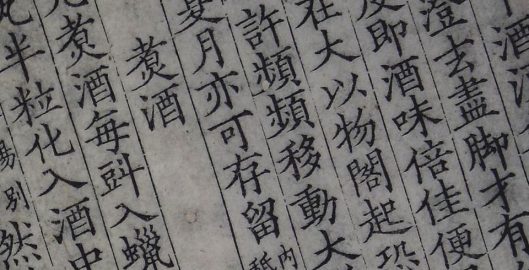 下酒
澄去盡脚才有
度即酒味倍佳便
在大以物閣起恐
許頻頻移動大
夏月亦可存留內
煑酒
煑酒每㪷入蠟
丸半粒化入酒中
別然